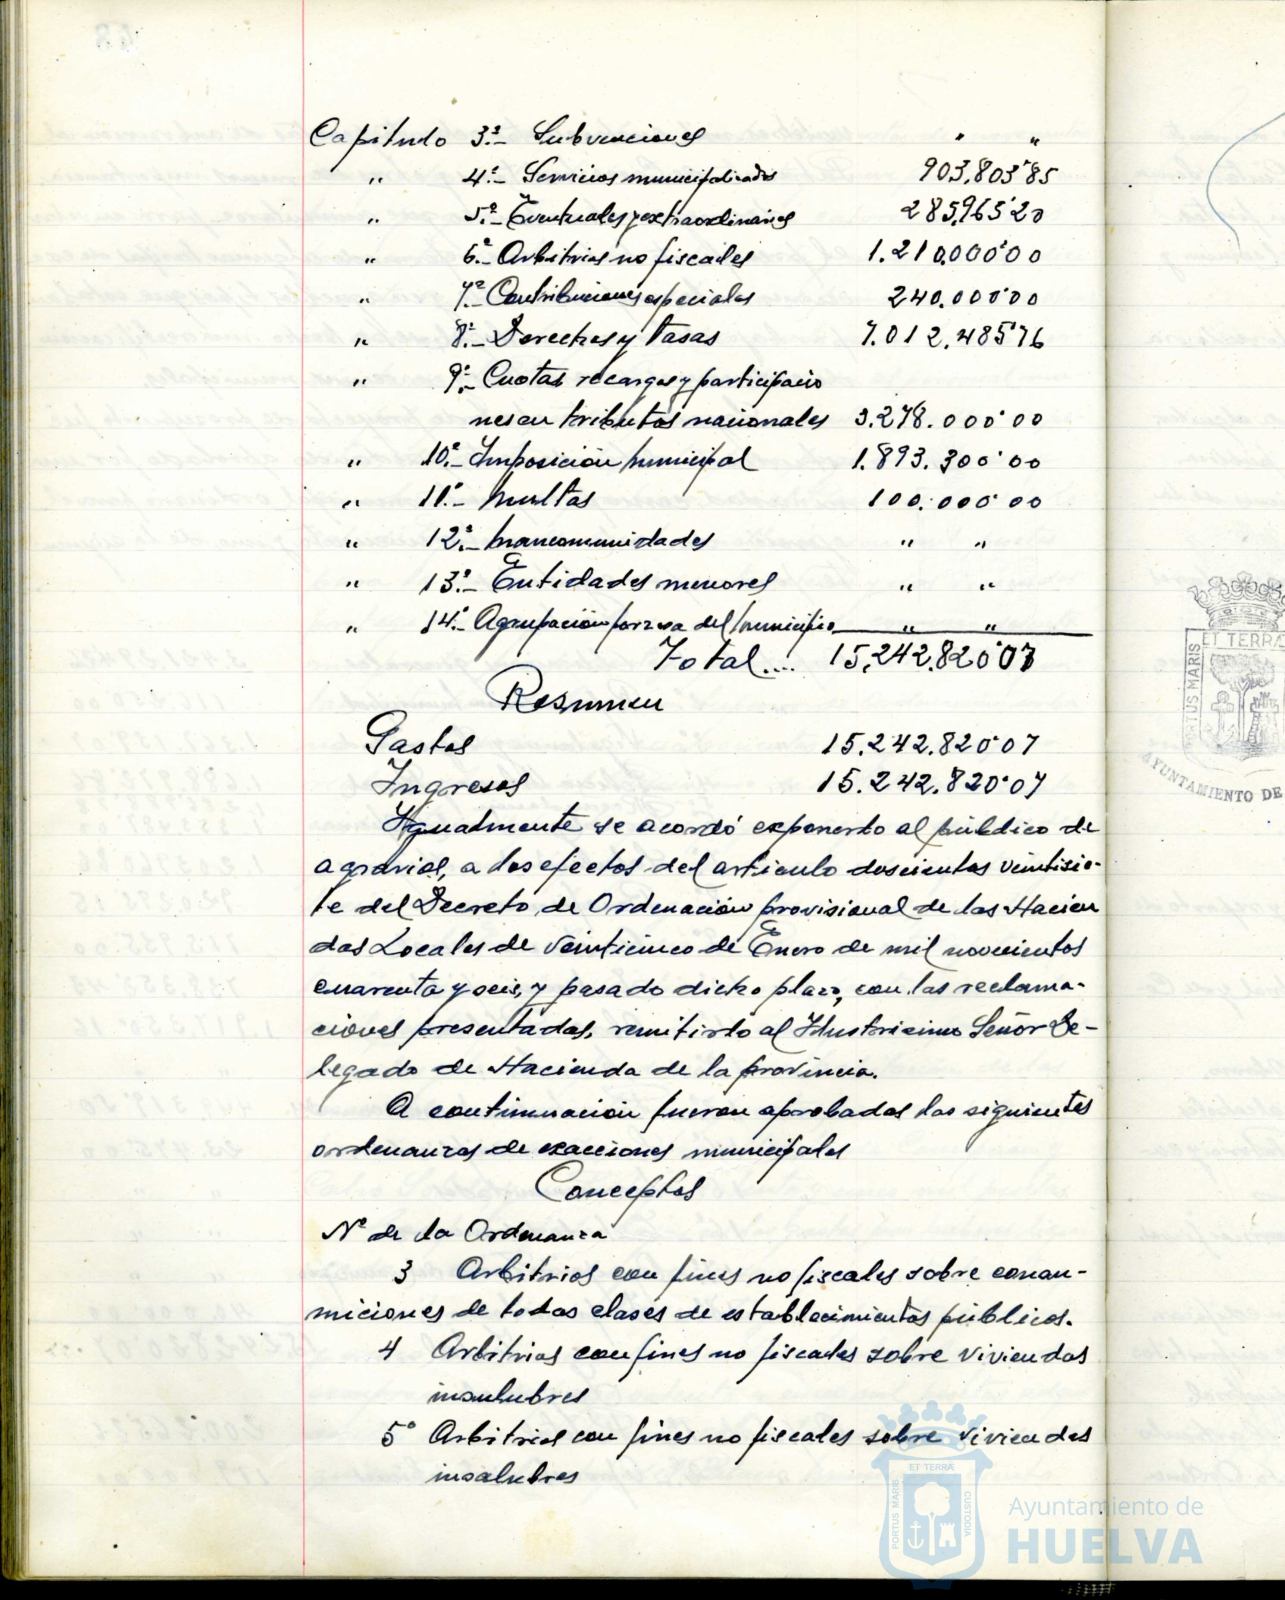 Capitulo 3º.- Subvenciones " "
" 4º.- Servicios municipalizados 903.803'85
" 5º.- Eventuales y extraordinarios 285.965'20
" 6º.- Arbitrios no fiscales 1.210.000'00
" 7º.- Contribuciones especiales 240.000'00
" 8º.- Derechos y tasas 7.012.485'76
" 9º.- Cuotas recargos y participacio
nes en tributos nacionales 3.278.000'00
" 10º.- Imposición municipal 1.893.300'00
" 11º.- Multas 100.000'00
" 12º.- Mancomunidades " "
" 13º.- Entidades menores " "
" 14º.- Agrupación forzosa del municipio " "
Total.... 15.242.820'07
Resumen
Gastos 15.242.820'07
Ingresos 15.242.820'07
Igualmente se acordó exponerlo al público de
agravios, a los efectos del articulo doscientos veintisie-
te del Decreto de Ordenación provisional de las Hacien
das Locales de veinticinco de Enero de mil novecientos
cuarenta y seis, y pasado dicho plazo, con las reclama-
ciones presentadas, remitirlo al Ilustrisimo Señor De-
legado de Hacienda de la provincia.
A continuación fueron aprobadas las siguientes
ordenanzas de exacciones municipales
Conceptos
Nº de la Ordenanza
3 Arbitrios con fines no fiscales sobre consu-
miciones de todas clases de establecimientos públicos.
4 Arbitrios con fines no fiscales sobre viviendas
insalubres
5º Arbitrios con fines no fiscales sobre viviendas
insalubres
PORTUS MARIS ET TERRÆ
AYUNTAMIENTO DE
PORTUS MARIS ET TERRÆ CUSTODIA
Ayuntamiento de
HUELVA